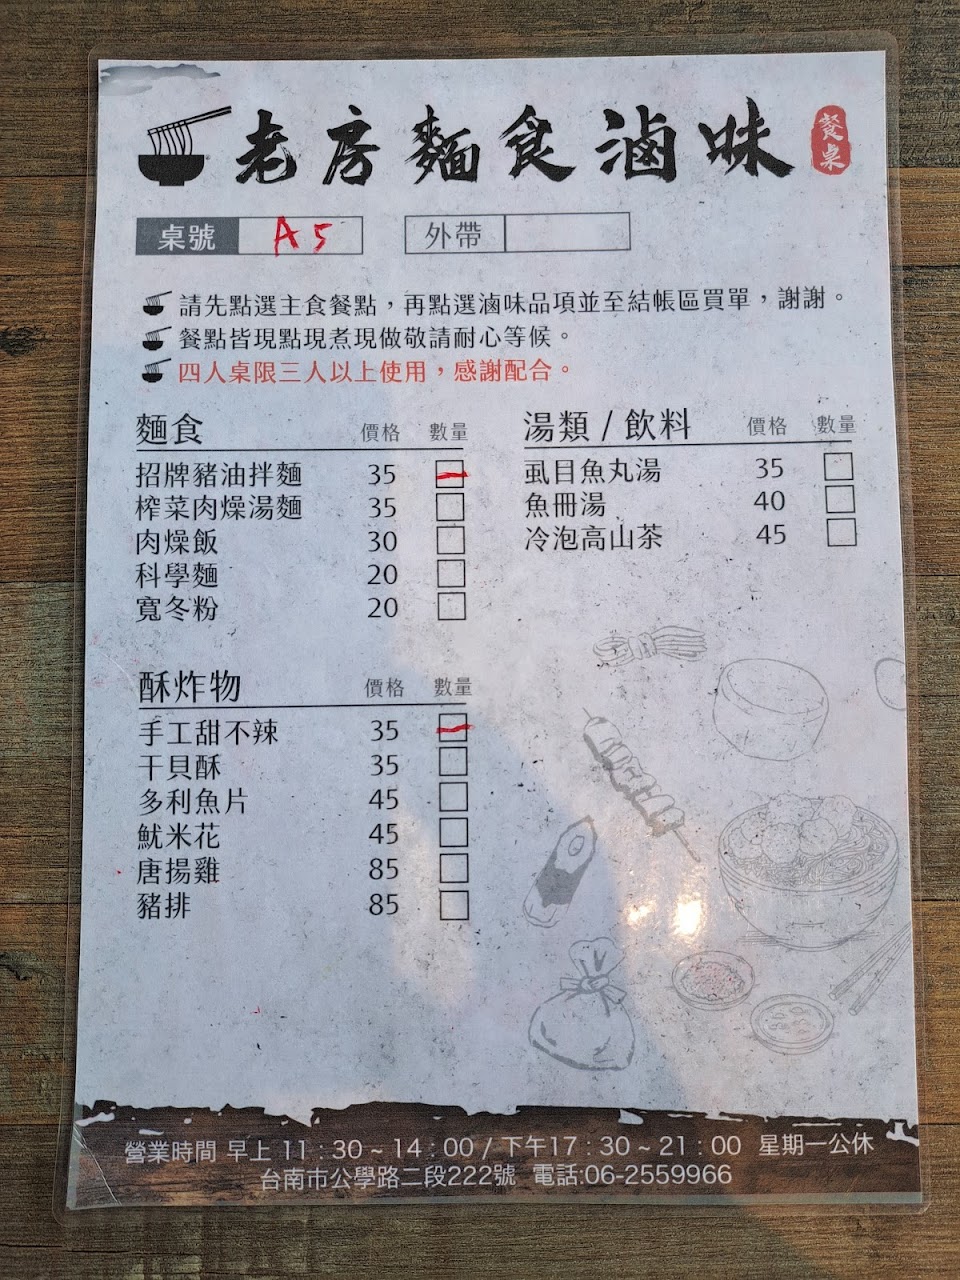 老房麵食滷味 餐桌
桌號 A5 外帶
請先點選主食餐點，再點選滷味品項並至結帳區買單，謝謝。
餐點皆現點現煮現做敬請耐心等候。
四人桌限三人以上使用，感謝配合。
麵食 價格 數量
招牌豬油拌麵 35 一
榨菜肉燥湯麵 35
肉燥飯 30
科學麵 20
寬冬粉 20
湯類 / 飲料 價格 數量
虱目魚丸湯 35
魚冊湯 40
冷泡高山茶 45
酥炸物 價格 數量
手工甜不辣 35 一
干貝酥 35
多利魚片 45
魷米花 45
唐揚雞 85
豬排 85
營業時間 早上 11：30 ~ 14：00 / 下午17：30 ~ 21：00 星期一公休
台南市公學路二段222號 電話:06-2559966